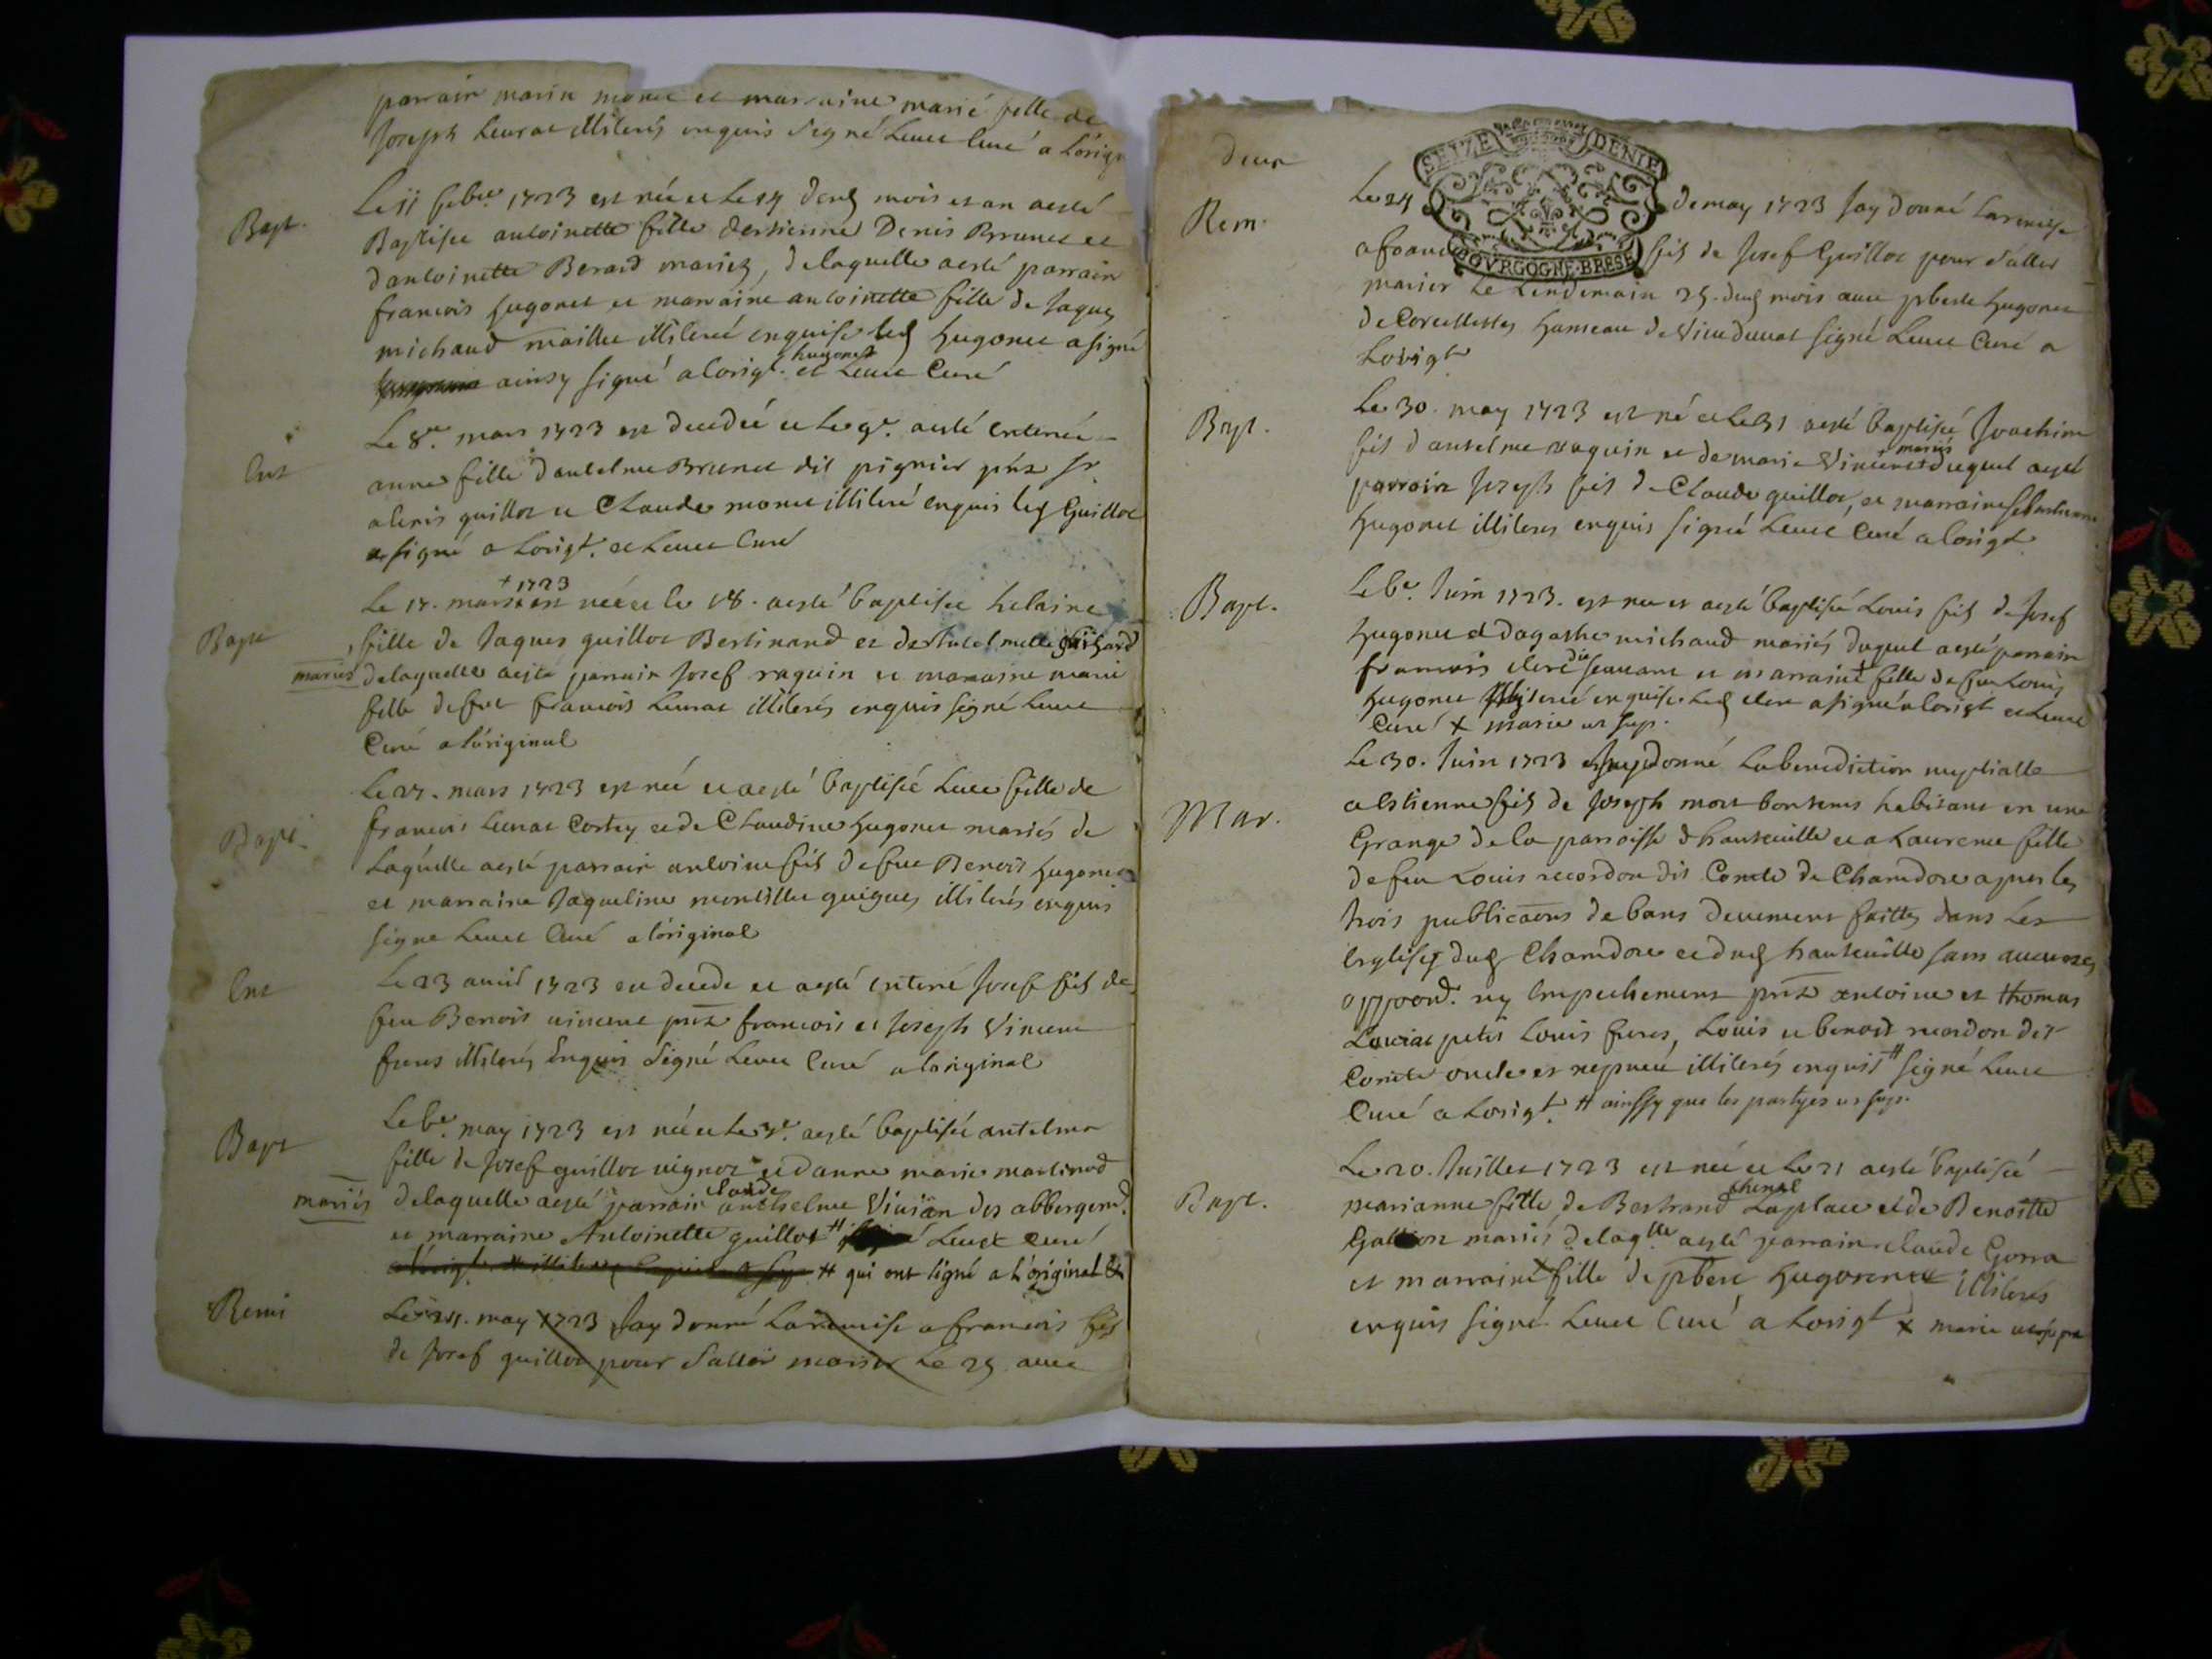 parrain marin monet et marraine marie fille de
Joseph Leurat illiterés enquis signé Leuet Curé a Lorig
Bapt. Le 11 febur. 1723 est née et Le 14 dud mois et an aesté
Baptisee antoinette fille destienne Denis Brunet et
dantoinette Berard mariez, delaquelle aesté parrain
francois hugonet et marraine antoinette fille de Jaques
michaud maillet illiteré enquise led hugonet asigné
ainsy signé alorigl. hugonet et Leuet Curé
Ent Le 8e. mars 1723 est decedée et Le 9e. aesté Enterrée
anne fille dantelme Brunet dit pignier pñs Sr.
alexis guillot et Claude monet illiteré enquis led Guillot
a signé a Lorigl. et Leuet Curé
Bapt Le 17. mars + 1723 est née et le 18. aesté baptisee helaine
fille de Jaques guillot Bertinand et destutelmette guichard
mariés delaquelle aesté parrain Josef raguin et maraine marie
fille defut francois Leurat illiterés enquis signé Leuet
Curé aloriginal
Bapt. Le 27. mars 1723 est née et aesté baptisée Luce fille de
francois Leurat Costey et de Claudine hugonet mariés de
Laquelle aesté parrain antoine fils defut Benoit hugonet
et marraine Jaqueline montillet guigues illiterés enquis
signe Leuet Curé aloriginal
Ent Le 23 auril 1723 est decede et aesté enterré Josef fils de
feu Benoit vincent pñs francois et Joseph Vincent
freres illiterés Enquis Signé Leuet Curé aloriginal
Bapt Le be. may 1723 est née et Le 7e. aesté baptisée antelma
fille de Josef guillot vignoz et danne marie martinod
mariés delaquelle aesté parrain claude anthelme Vivian des abbergem.
et marraine Antoinette guillot # Leuet Curé
# qui ont signé a l'original &
Remi Le 24. may 1723 Jay donné Laremise a francois fils
de Josef guillot pour Saller marier Le 25 auec
deux
SEIZE DENIE
BOVRGOGNE·BRESE
Rem. Le 24 de may 1723 Jay donné Laremise
a francois fils de Josef Guillot pour Saller
marier Le Lendemain 25. dud mois auec pberte hugonet
de Corcellettes hameau de Vieuduuat signé Leuet Curé a
Lorigl
Bapt. Le 30. may 1723 est né et Le 31 aesté baptisée Joachim
fils dantelme raguin et de marie Vincent mariés duquel aesté
parrain Joseph fils de Claude guillot, et marraine sebastienne
hugonet illiteres enquis signé Leuet Curé alorigl
Bapt. Le be. Juin 1723. est nee et aesté baptisée Louis fils de Josef
hugonet et dagathe michaud mariés duquel aesté parrain
francois clerc dit seauant et marraine + fille de feu Louis
hugonet illiteré enquise led clerc asigné alorigl et Leuet
Curé + marie ut sup.
Mar. Le 30. Juin 1723 Jay donné La benediction nuptialle
a Estienne fils de Joseph mort bontems habitant en une
Grange de la parroisse dhauteuille et a Laurence fille
de feu Louis recordon dit Comte de Chamdore apres les
trois publicaons de bans deuement faittes dans Les
Eglises dud Chamdore et dud hauteuille sans aucunes
oppoond. ny Empechement pñs antoine et thomas
Leurat petit Louis freres, Louis et benoit recordon dit
Comte oncle et nepueu illiterés enquis # signé Leuet
Curé a Lorigl. # ainsy que les partyes ut sup.
Bapt. Le 20. Juillet 1723 est née et Le 21 aesté baptisée
marianne fille de Bertrand chenal Laplace et de Benoitte
Gallion mariés delaqlle aesté parrain claude Gorra
et marraine + fille de pbert hugonet illiterés
enquis signé Leuet Curé a Lorigl + marie ut supra